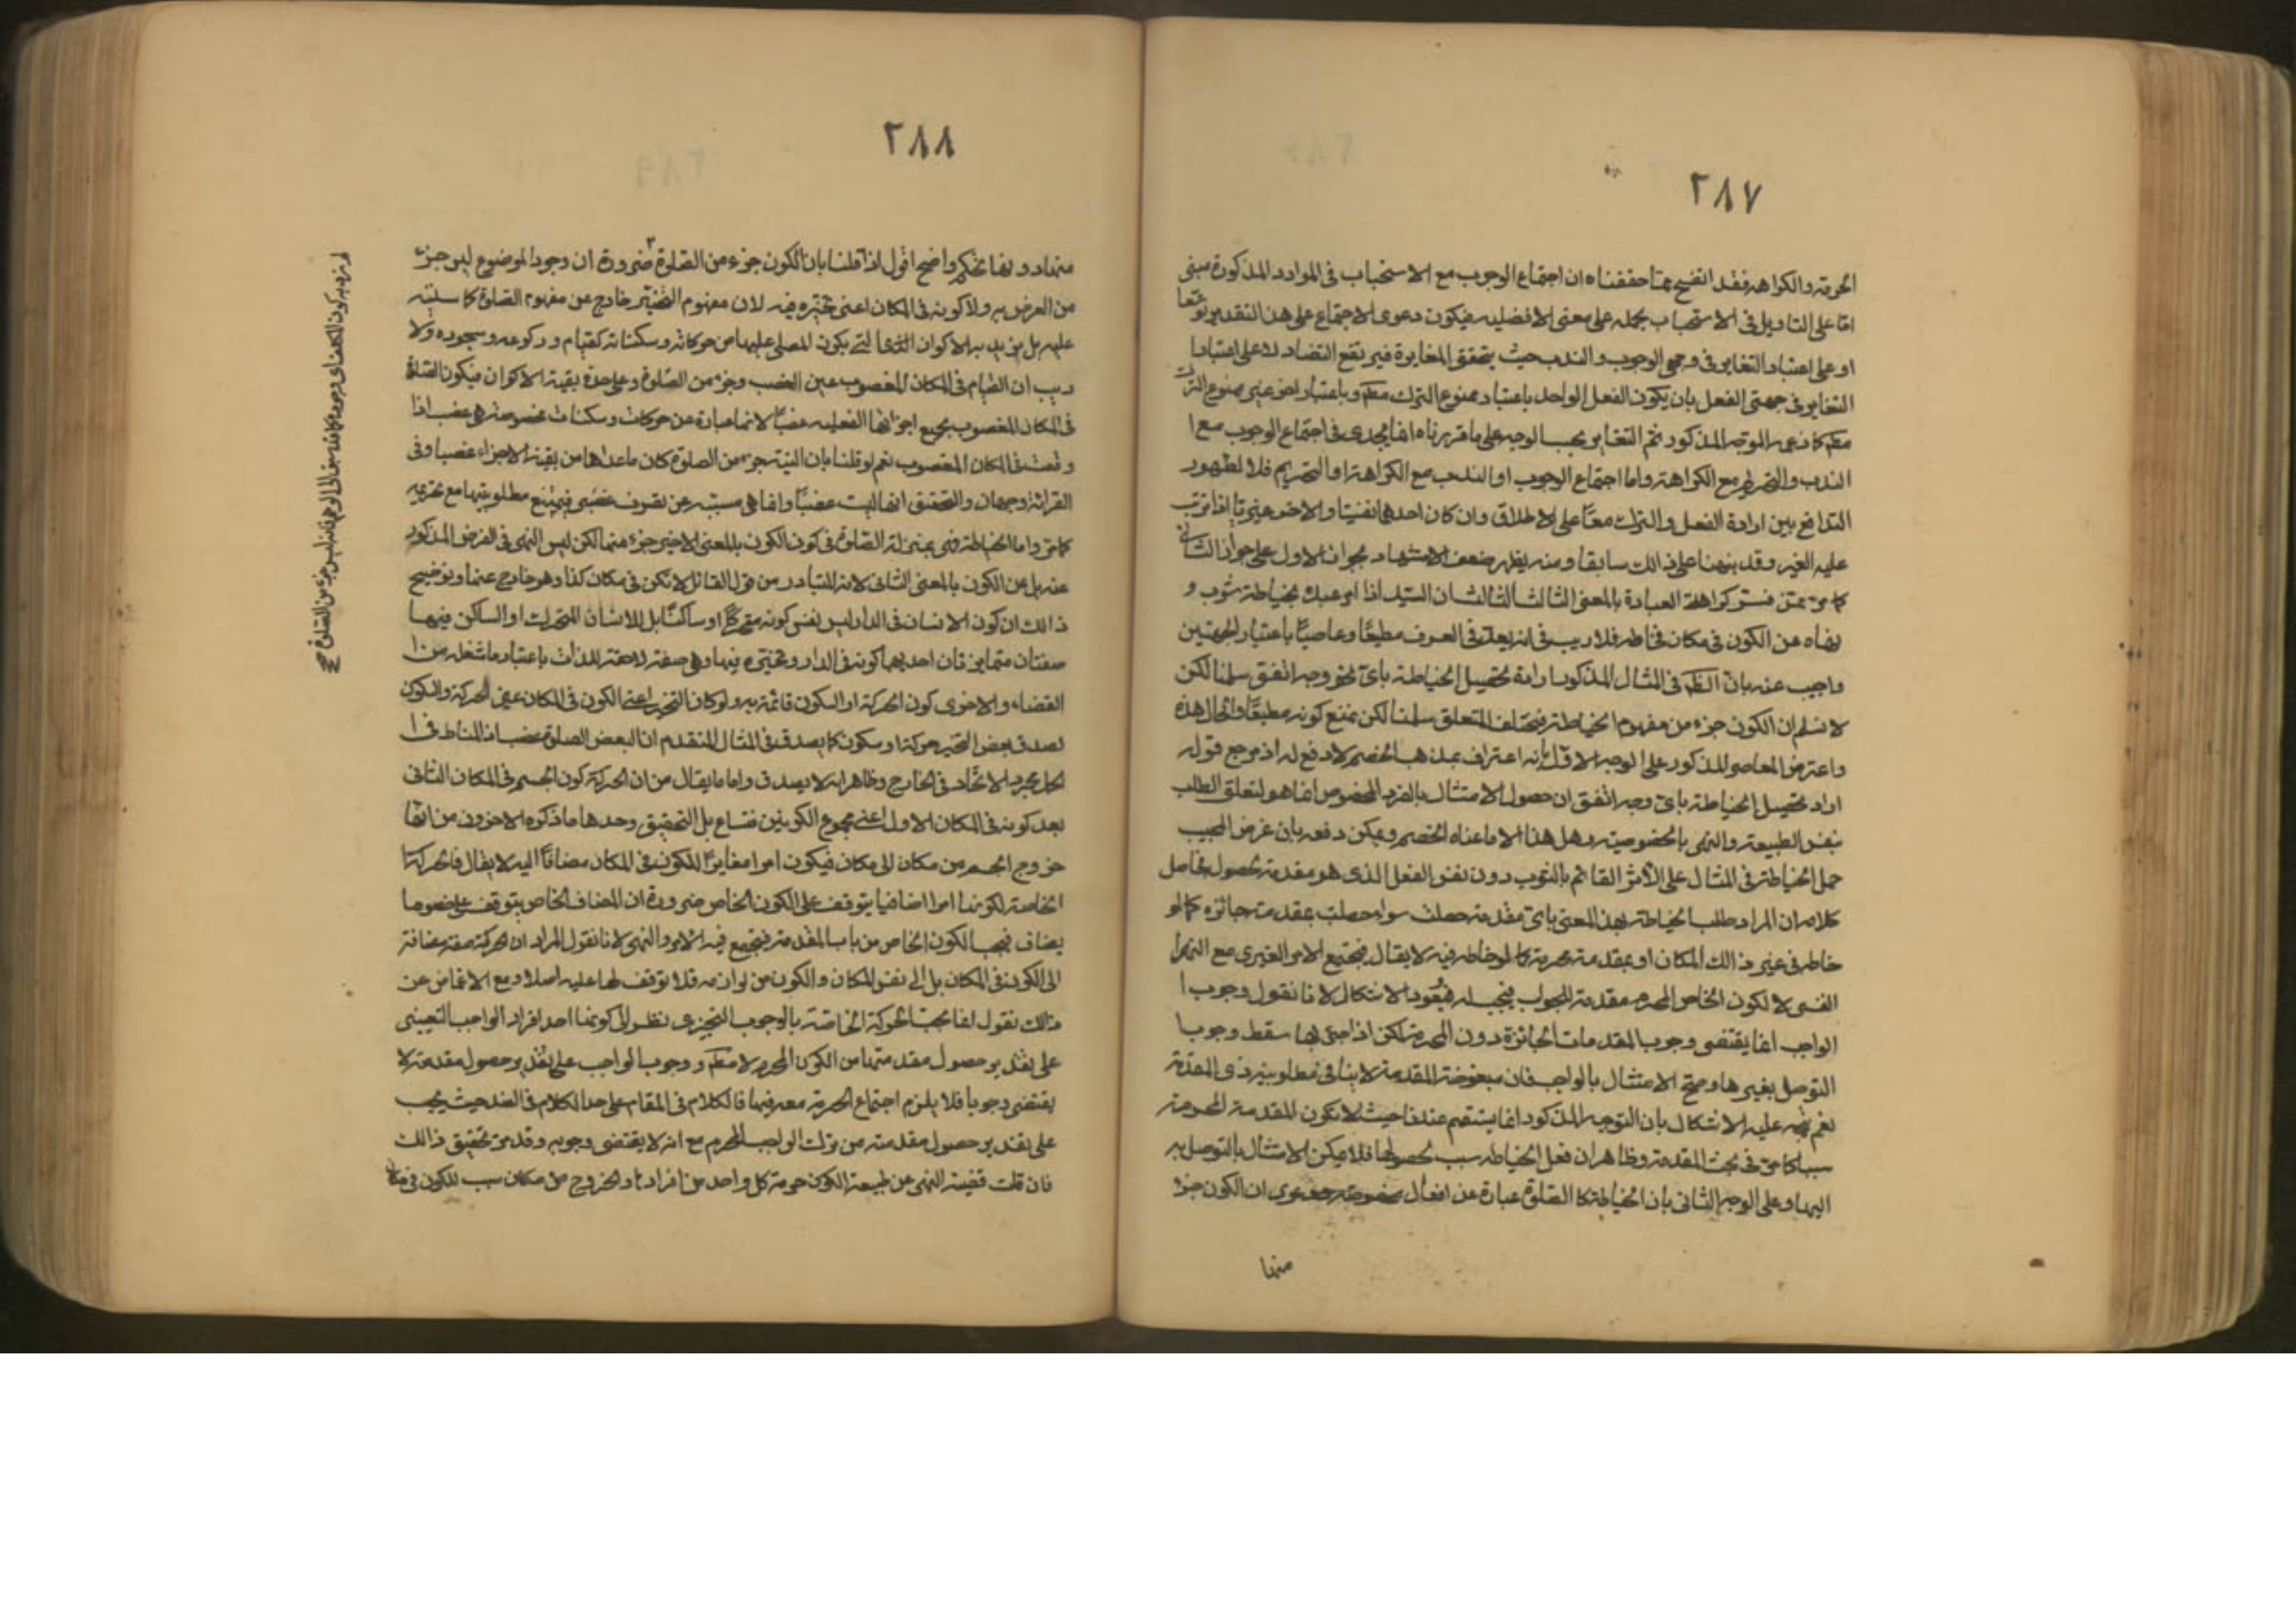 ٢٨٧
الحرمة والكراهة فقد اتضح مما حققناه ان اجتماع الوجوب مع الاستحباب فى الموارد المذكورة مبنى
اما على التاويل فى الاستحباب بحمله على معنى الافضلية فيكون دعوى الاجتماع على هذا التقدير توسعا
او على اعتبار التغاير فى وجهى الوجوب والندب حيث يتحقق المغايرة فيرتفع التضاد لا على اعتبار
التغاير فى جهتى الفعل بان يكون الفعل الواحد باعتبار ممنوع الترك مطم وباعتبار اخر غير ممنوع الترك
مطم كما زعمه الموجه المذكور ثم التغاير بحسب الوجه على ما قررناه انما يجدى فى اجتماع الوجوب مع ا
الندب والتحريم مع الكراهة واما اجتماع الوجوب او الندب مع الكراهة او التحريم فلا لظهور
التدافع بين ارادة الفعل والترك معا على الاطلاق وان كان احدهما نفسيا والاخر غيريا اذا ترتب
عليه الغير وقد نبهنا على ذالك سابقا ومنه يظهر ضعف الاستشهاد بجواز الاول على جواز الثانى
كما مر ممن فسر كراهة العبادة بالمعنى الثالث الثالث ان السيد اذا امر عبده بخياطة ثوب و
نهاه عن الكون فى مكان فخاطه فلا ريب فى انه يعد فى العرف مطيعا وعاصيا باعتبار الجهتين
واجيب عنه بان الظم فى المثال المذكور ارادة تحصيل الخياطة باى نحو وجه اتفق سلمنا لكن
لا نسلم ان الكون جزء من مفهوم الخياطة فيختلف المتعلق سلمنا لكن نمنع كونه مطيعا والحال هذه
واعترض المعاصر المذكور على الوجه الاول بانه اعتراف بمذهب الخصم لا دفع له اذ مرجع قوله
اراد تحصيل الخياطة باى وجه اتفق ان حصول الامتثال بالفرد المخصوص انما هو لتعلق الطلب
بنفس الطبيعة والنهى بالخصوصية وهل هذا الا ما عناه الخصم ويمكن دفعه بان غرض المجيب
حمل الخياطة فى المثال على الاثر القائم بالثوب دون نفس الفعل الذى هو مقدمة لحصوله فحاصل
كلامه ان المراد طلب الخياطة بهذا المعنى باى مقدمة حصلت سواء حصلت بمقدمة جائزة كما لو
خاطه فى غير ذالك المكان او بمقدمة محرمة كما لو خاطه فيه لا يقال فيجتمع الامر الغيرى مع النهى ا
النفسى لا لكون الخاص المحرم مقدمة للمطلوب فيجب له فيعود الاشكال لانا نقول وجوب ا
الواجب انما يقتضى وجوب المقدمات الجائزة دون المحرمة لكن اذا حتى بها سقط وجوب ا
التوصل بغيرها وصح الامتثال بالواجب فان مبغوضية المقدمة لا ينافى مطلوبية ذى المقدمة
نعم يتجه عليه الاشكال بان التوجيه المذكور انما يستقيم عندنا حيث لا تكون المقدمة المحرمة
سببا كما مر فى بحث المقدمة وظاهر ان فعل الخياطة سبب لحصولها فلا يمكن الامتثال بالتوصل به
اليها وعلى الوجه الثانى بان الخياطة كالصلوة عبارة عن افعال مخصوصة فدعوى ان الكون جزء
منها
٢٨٨
منها دونها تحكم واضح اقول اذا قلنا بان الكون جزء من الصلوة ضرورة ان وجود الموضوع ليس جزء
من العرض به ولا كونه فى المكان اعنى تحيزه فيه لان مفهوم التحيز خارج عن مفهوم الصلوة كما سننبه
عليه بل نريد به الاكوان التى يكون المصلى عليها من حركاته وسكناته كقيام وركوعه وسجوده ولا
ريب ان القيام فى المكان المغصوب عين الغصب وجزء من الصلوة وعلى حدة بقية الاكوان فيكون الصلوة
فى المكان المغصوب بجميع اجزائها الفعلية غصبا لانها عبارة عن حركات وسكنات مخصوصة هى غصب اذا
وقعت فى المكان المغصوب نعم لو قلنا بان النية جزء من الصلوة كان ما عداها من بقية الاجزاء غصبا وفى
القرائة وجهان والتحقيق انها ليست غصبا وانما هى مسببة عن تصرف غصبى فيمتنع مطلوبيتها مع تحريمه
كما مر واما الخياطة فهى بمنزلة الصلوة فى كون الكون بالمعنى الاخير جزء منها لكن ليس النهى فى الفرض المذكور
عنه بل عن الكون بالمعنى الثانى لانه المتبادر من قول القائل لا تكن فى مكان كذا وهو خارج عنها وتوضيح
ذالك ان كون الانسان فى الدار ليس نفس كونه متحركا او ساكنا بل للانسان المتحرك او الساكن فيها
صفتان متمايزتان احديهما كونه فى الدار وتحيزه فيها وهى صفة لاحقة للذات باعتبار ما شغله من ا
الفضاء والاخرى كون الحركة او السكون قائمة به ولو كان التحيز اعنى الكون فى المكان عين الحركة والسكون
لصدق بعض التحيز حركة او سكون كما يصدق فى المثال المتقدم ان البعض الصلوة غصب اذ المناط فى ا
الحمل مجرد الاتحاد فى الخارج وظاهر انه لا يصدق واما ما يقال من ان الحركة كون الجسم فى المكان الثانى
بعد كونه فى المكان الاول اعنى مجموع الكونين فتسامح بل التحقيق وحدها ما ذكره الاخرون من انها
خروج الجسم من مكان الى مكان فيكون امرا مغايرا للكون فى المكان مضافا اليه لا يقال فالحركة
الخاصة لكونها امرا اضافيا يتوقف على الكون الخاص ضرورة ان المضاف الخاص يتوقف على خصوص ما
يضاف فيجب الكون الخاص من باب المقدمة فيجتمع فيه الامر والنهى لانا نقول المراد ان الحركة صفة مضافة
الى الكون فى المكان بل الى نفس المكان والكون من لوازمه فلا توقف لها عليه اصلا ومع الاغماض عن
ذالك نقول انما يجب الحركة الخاصة بالوجوب التخييرى نظرا الى كونها احد افراد الواجب التعيينى
على تقدير حصول مقدمتها من الكون المحرم لا مطم ووجوب الواجب على تقدير حصول مقدمة لا
يقتضى وجوبها فلا يلزم اجتماع الحرمة معه فيها فالكلام فى المقام على حد الكلام فى الضد حيث يجب
على تقدير حصول مقدمته من ترك الواجب المحرم مع انه لا يقتضى وجوبه وقد مر تحقيق ذالك
فان قلت قضية النهى عن طبيعة الكون حرمة كل واحد من افراده والخروج من مكان سبب للكون فى مكان
لم نرد به كون المصلى اى وجوده ليس جزء من الصلوة صح